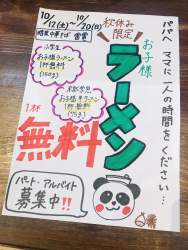 10/12(土)~10/20(日)
暗黒中華そば 雷雷
秋休み限定
お子様
ラーメン
無料
小学生
お子様ラーメン
1杯無料
(150g)
未就学児
お子様半ラーメン
1杯無料
(75g)
1杯
パパへ ママに二人の時間をください…
パート・アルバイト
募集中!!